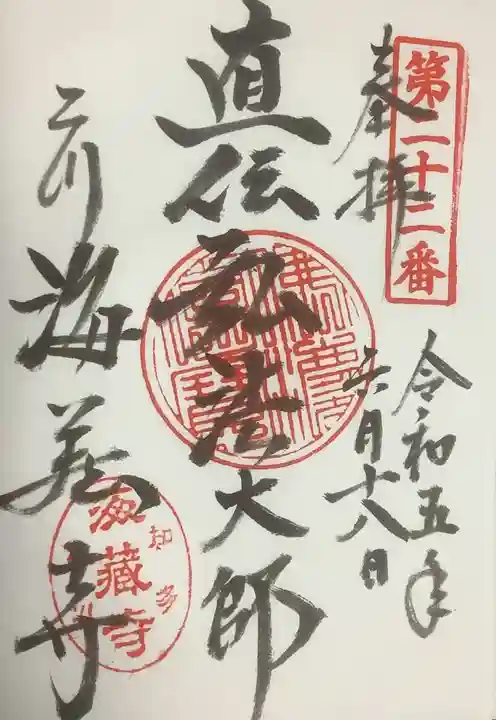 第二十二番
奉拝
令和五年
六月十八日
直伝弘法大師
乙川
海蔵寺
知多
海藏寺